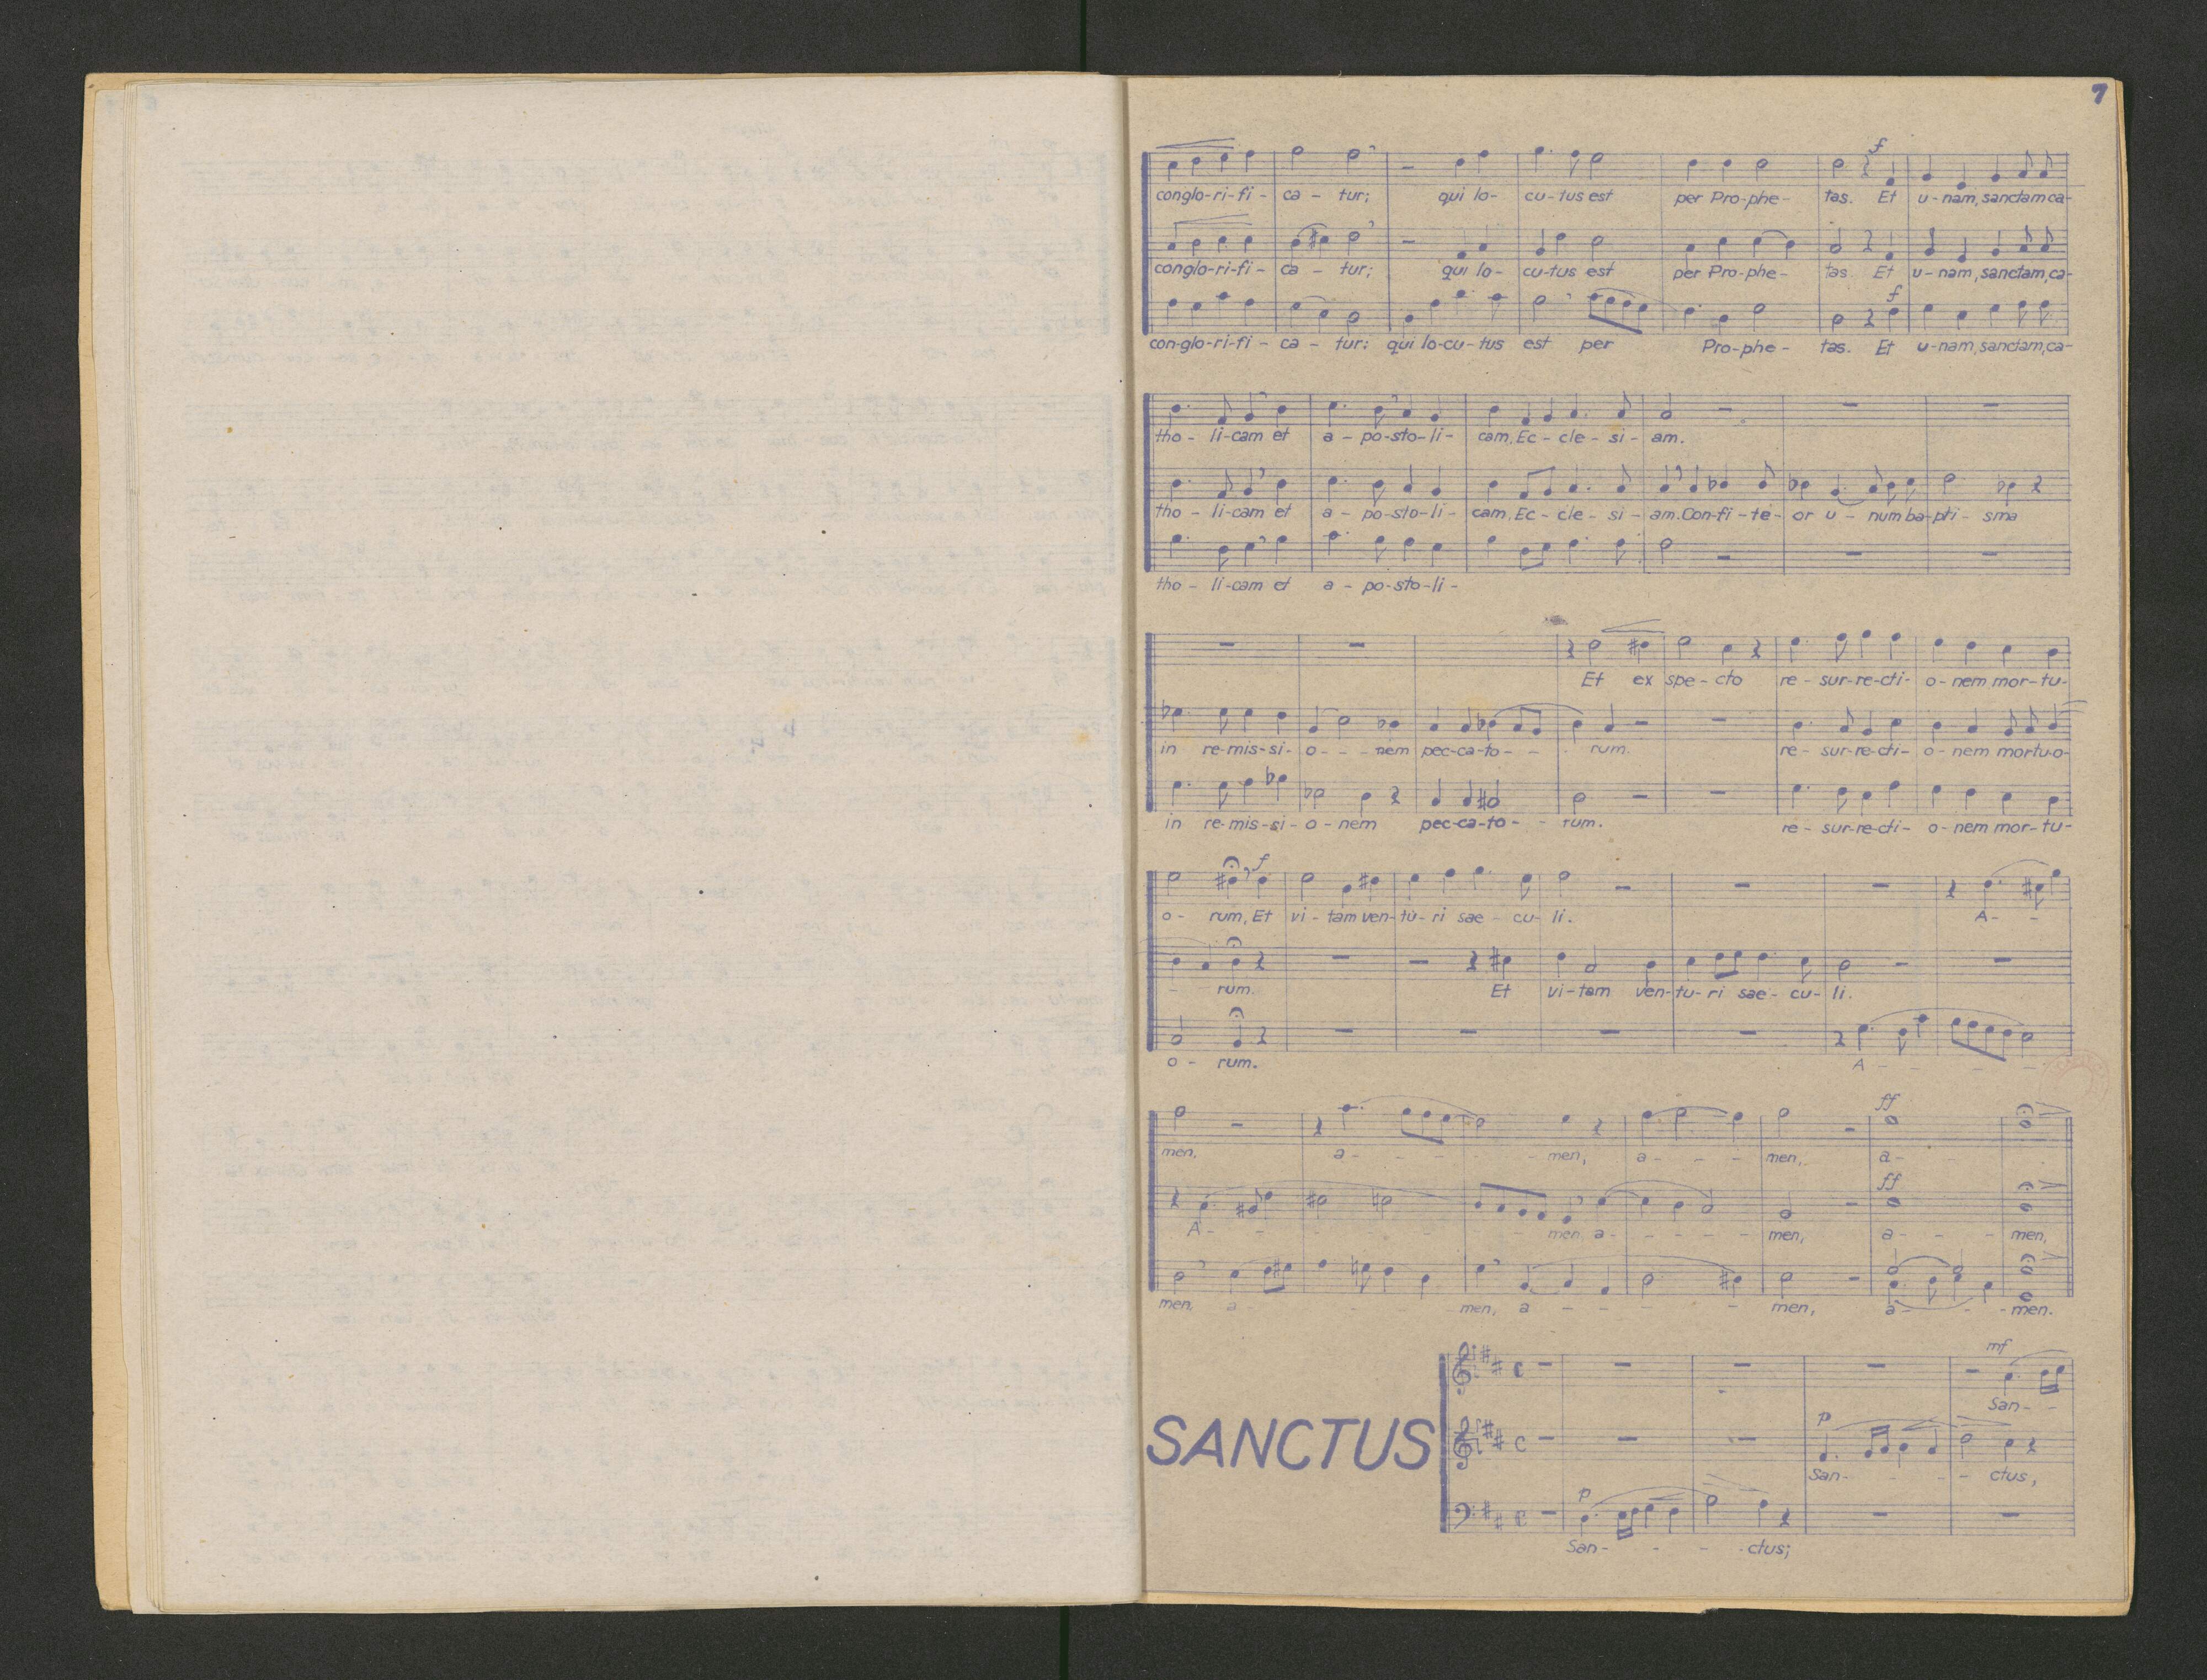 7
f
conglo-ri-fi- ca - tur; qui lo- cu-tus est per Pro-phe- tas. Et u-nam, sanctam ca-
conglo-ri-fi- ca - tur; qui lo- cu-tus est per Pro-phe- tas Et u-nam, sanctam, ca-
f
con-glo-ri-fi- ca - tur: qui lo-cu-tus est per Pro-phe- tas. Et u-nam, sanctam, ca-
tho- li-cam et a - po-sto-li- cam, Ec-cle-si- am.
tho- li-cam et a - po-sto-li- cam, Ec-cle-si- am. Con-fi-te- or u - num ba-pti- sma
tho- li-cam et a - po-sto-li-
Et ex spe-cto re- sur-re-cti- o-nem mor-tu-
in re-mis-si- o - - nem pec-ca-to - - rum. re- sur-re-cti- o-nem mortu-o-
in re-mis-si- o-nem pec-ca-to - - rum. re- sur-re-cti- o-nem mor-tu-
f
o- rum, Et vi-tam ven-tu-ri sae-cu- li. A- -
- - rum. Et vi-tam ven-tu-ri sae-cu- li.
o- rum. A - - - -
ff
men. a- - - - - men, a- - - men, a- - -
ff
A- - - - - - - - men a- - - - - men, a- - - men,
men, a- - - - - men, a - - - - - men, a- - - men.
mf
San- -
SANCTUS
p
San- - - - ctus,
p
San- - - - ctus;